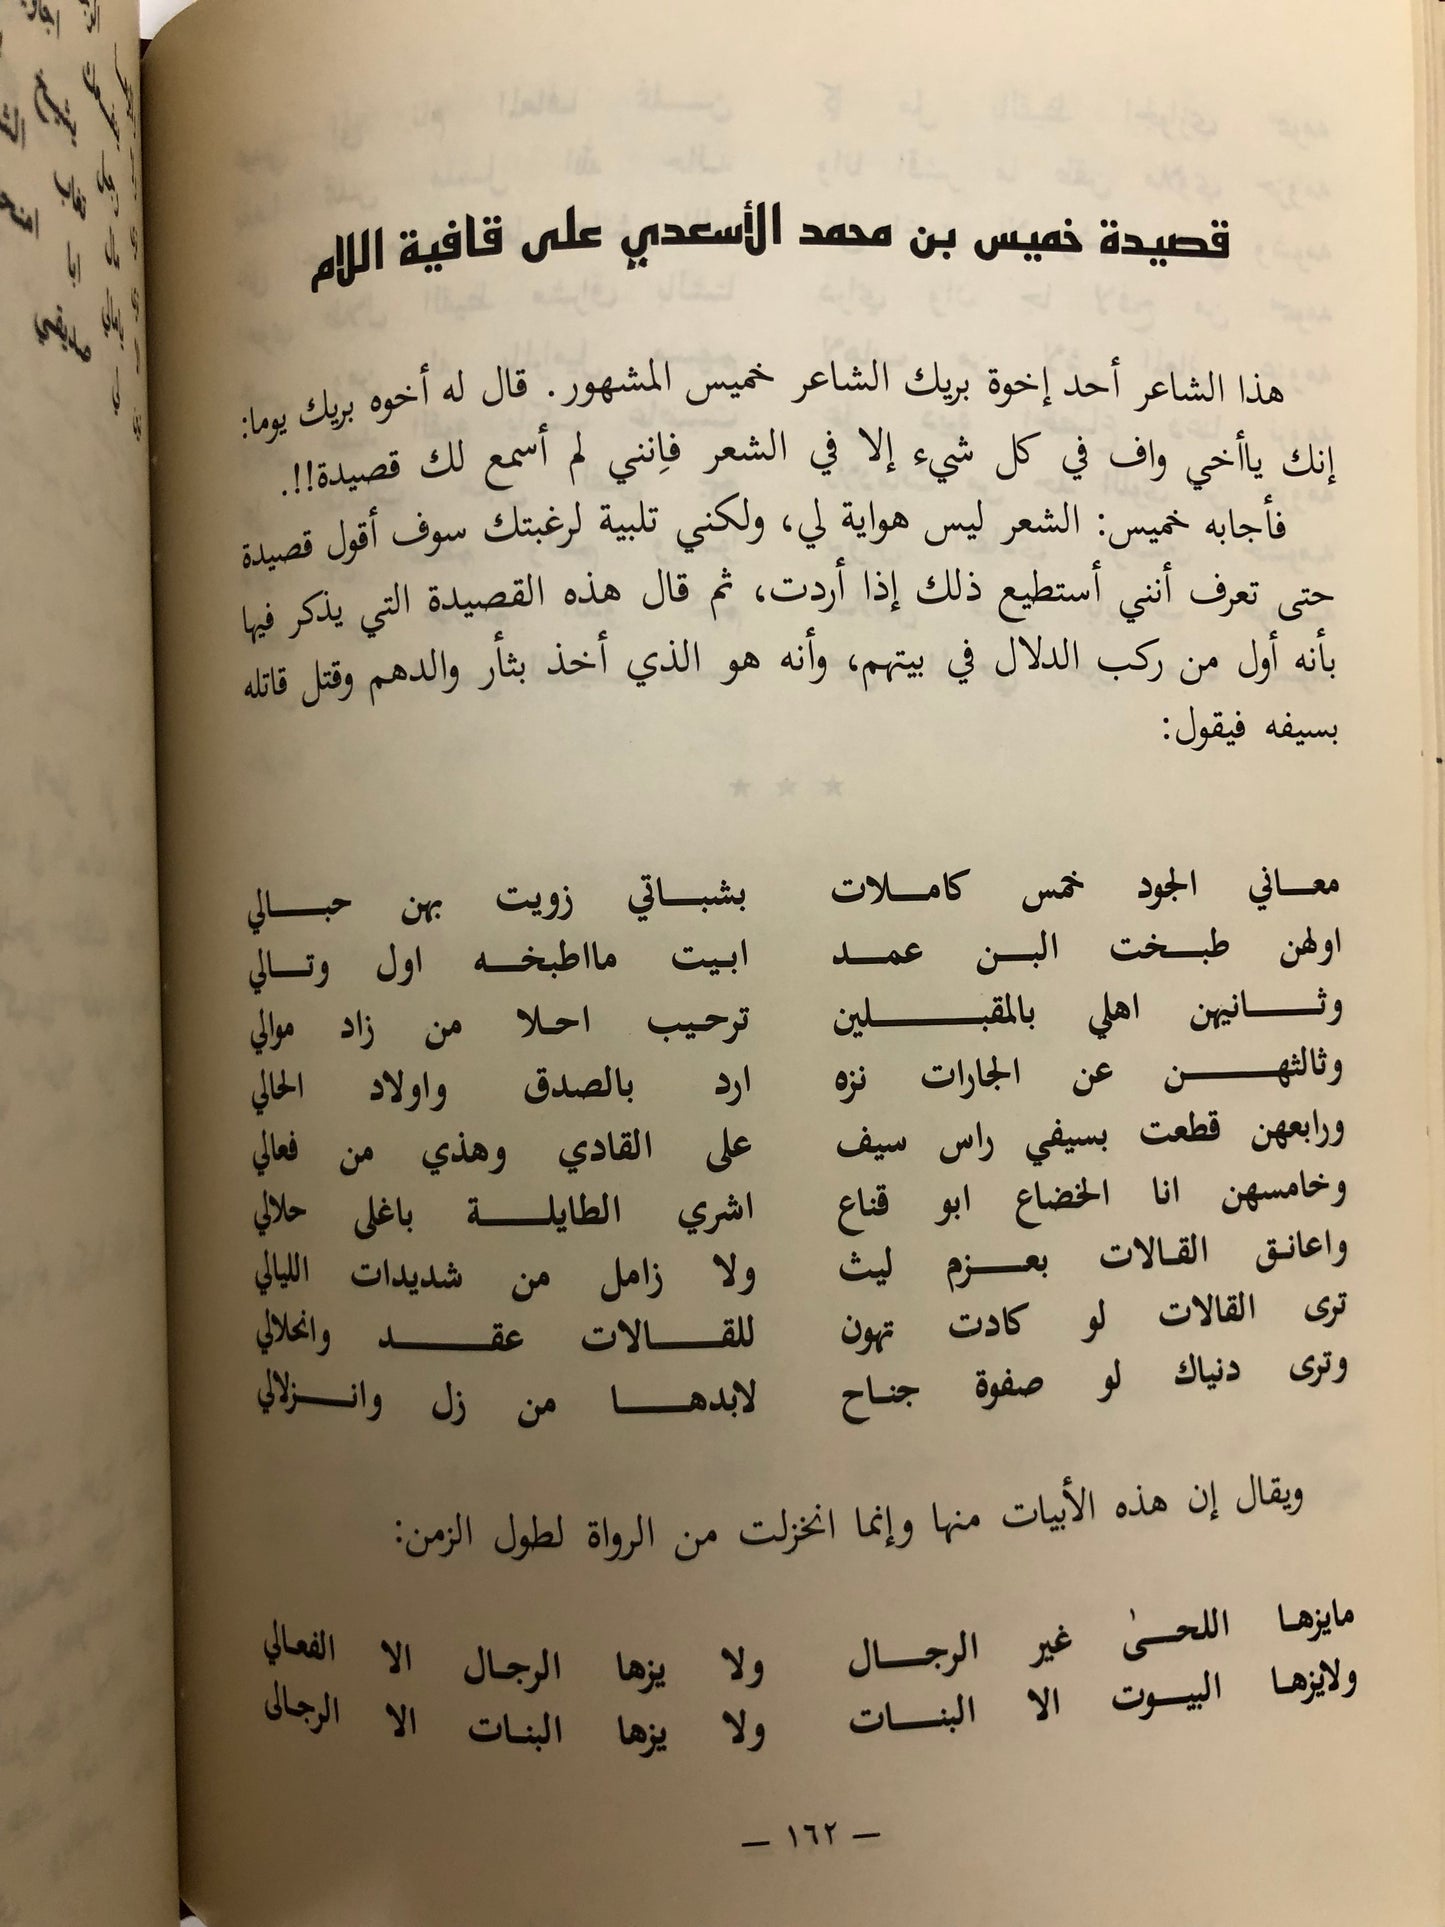 قصيدة خميس بن محمد الأسعدي على قافية اللام
هذا الشاعر أحد إخوة بريك الشاعر خميس المشهور. قال له أخوه بريك يوما:
إنك ياأخي واف في كل شيء إلا في الشعر فإنني لم أسمع لك قصيدة!!.
فأجابه خميس: الشعر ليس هواية لي، ولكني تلبية لرغبتك سوف أقول قصيدة
حتى تعرف أنني أستطيع ذلك إذا أردت، ثم قال هذه القصيدة التي يذكر فيها
بأنه أول من ركب الدلال في بيتهم، وأنه هو الذي أخذ بثأر والدهم وقتل قاتله
بسيفه فيقول:
معاني الجود خمس كاملات بشباتي زويت بهن حبالي
اولهن طبخت البن عمد ابيت مااطبخه اول وتالي
وثانيهن اهلي بالمقبلين ترحيب احلا من زاد موالي
وثالثهن عن الجارات نزه ارد بالصدق واولاد الحالي
ورابعهن قطعت بسيفي راس سيف على القادي وهذي من فعالي
وخامسهن انا الخضاع ابو قناع اشري الطايلة باغلى حلالي
واعانق القالات بعزم ليث ولا زامل من شديدات الليالي
ترى القالات لو كادت تهون للقالات عقد وانحلالي
وترى دنياك لو صفوة جناح لابدها من زل وانزلالي
ويقال إن هذه الأبيات منها وإنما انخزلت من الرواة لطول الزمن:
مايزها اللحىٰ غير الرجال ولا يزها الرجال الا الفعالي
ولايزها البيوت الا البنات ولا يزها البنات الا الرجالى
— ١٦٢ —